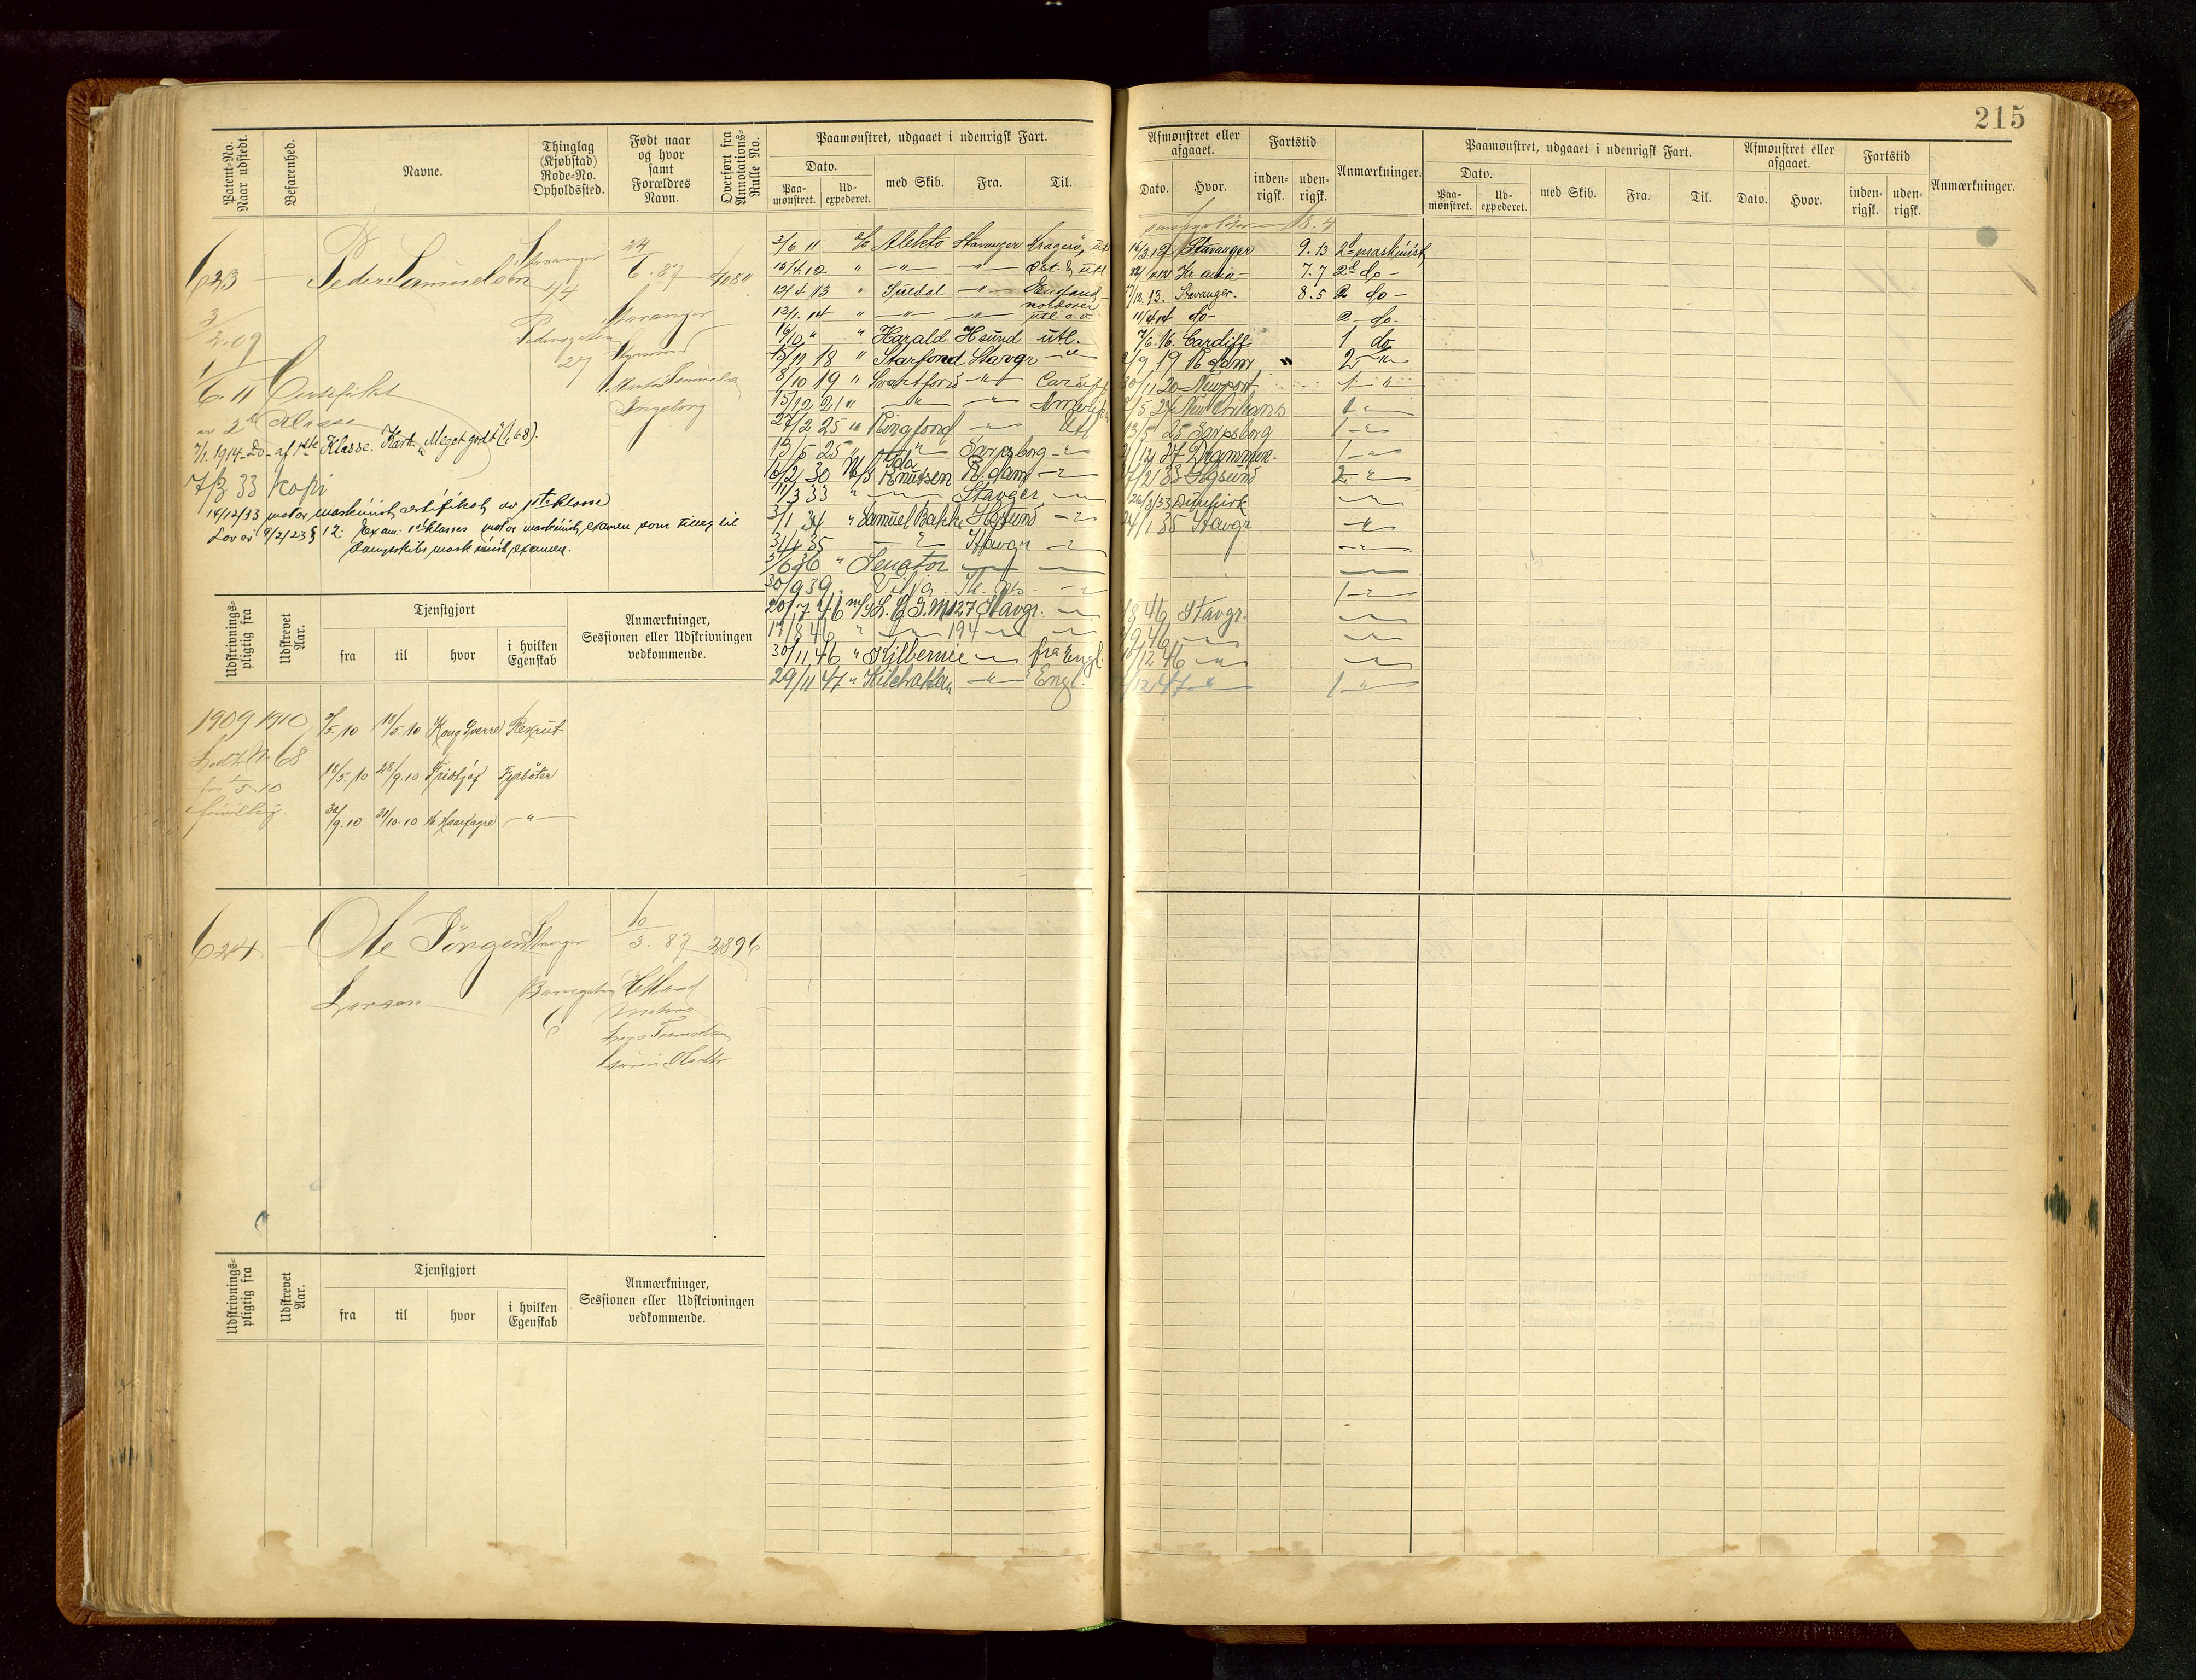 215
Patent-No. Naar udstedt.
Befarenhed.
Navne.
Thinglag (Kjøbstad) Rode-No. Opholdssted.
Født naar og hvor samt Forældres Navn.
Overført fra Annotations-Rulle No.
Paamønstret, udgaaet i udenrigsk Fart.
Dato.
Paa-mønstret.
Ud-expederet.
med Skib.
Fra.
Til.
Afmønstret eller afgaaet.
Dato.
Hvor.
Fartstid
inden-rigsk.
uden-rigsk.
Anmærkninger.
Paamønstret, udgaaet i udenrigsk Fart.
Dato.
Paa-mønstret.
Ud-expederet.
med Skib.
Fra.
Til.
Afmønstret eller afgaaet.
Dato.
Hvor.
Fartstid
inden-rigsk.
uden-rigsk.
Anmærkninger.
623 — Peder Samuelsen
Stavanger
44
Pedersgaten
27
24/6. 87
Stavanger
Ingeborg
3/2.09
1/6.11 Certifikat
av 2den Klasse
7/1.1914 Do- af 1ste Klasse. Kar. "Meget godt" (1,68).
7/3 33 Kopi
14/12/33 motor maskinist certifikat av 1ste klasse
Lov av 9/2/23 § 12. Exam: 1ste klasses motor maskinist examen som tillæg til
dampskibs maskinist examen.
3/6 11 Alekto Stavanger Kragerø, utl
13/4.12 " —"— —"— Øst. & utl.
12/4 13 " Suldal —"— England
13/1. 14 " —"— —"— utl
16/10 " " Harald Hsund utl.
15/11 18 " Starfond Stavgr —"—
8/10 19 " Svartfond —"— Cardiff
15/12 21 " —"— —"—
27/2 25 " Ringfond —"— Utl
15/5 25 " —"— Sarpsborg —"—
15/2 30 M/S Ida Knutsen R.dam —"—
11/3 33 " —"— Stavger —"—
3/1 34 " Samuel Bakke Hgsund —"—
3/4 35 —"— Stavgr —"—
5/6 36 " Senator —"— —"—
30/9 39 Vilja
20/7 46 m/s L.C.T. M127 Stavgr. —"—
17/8 46 " —"— 194 —"— —"—
30/11 46 " Kilbernie —"— fra Engl.
29/11 47 " Kilchattan —"— Engl.
18.4
16/3 12 Stavanger 9.13 2den maskinist
Kr.ania 7.7 2d do —
12.13. Stavanger. 8.5 2 do —
11/4 14 do- 2 do.
7/6.16. Cardiff 1 do
9 19 R dam " 2 —"—
30/11 20 Newport 1 —"—
5 24 New Orleans 1 —"—
13/5 25 Sarpsborg 1 —"—
Drammen. 1 —"—
2 33 Hgsund 2 —"—
26/8/33 Dunkirk —"—
24/1 35 Stavgr —"—
—"—
—"—
1 —"—
8 46 Stavgr. —"—
9 46 —"— —"—
12 46 —"— —"—
12 47 —"— 1 —"—
Udskrivnings-pligtig fra
Udskrevet Aar.
Tjenstgjort
fra
til
hvor
i hvilken Egenskab
Anmærkninger, Sessionen eller Udskrivningen vedkommende.
1909 1910 3/5.10 18/5.10 Kong Sverre Rekrut
68
18/5.10 28/9.10 Fridtjof Fyrbøter
frivillig.
30/9.10 31/10.10 Haarfagre —"—
624 — Ole Jörgen
Larsen
Stvanger
6
10/3. 87
Hetland
2896
Udskrivnings-pligtig fra
Udskrevet Aar.
Tjenstgjort
fra
til
hvor
i hvilken Egenskab
Anmærkninger, Sessionen eller Udskrivningen vedkommende.